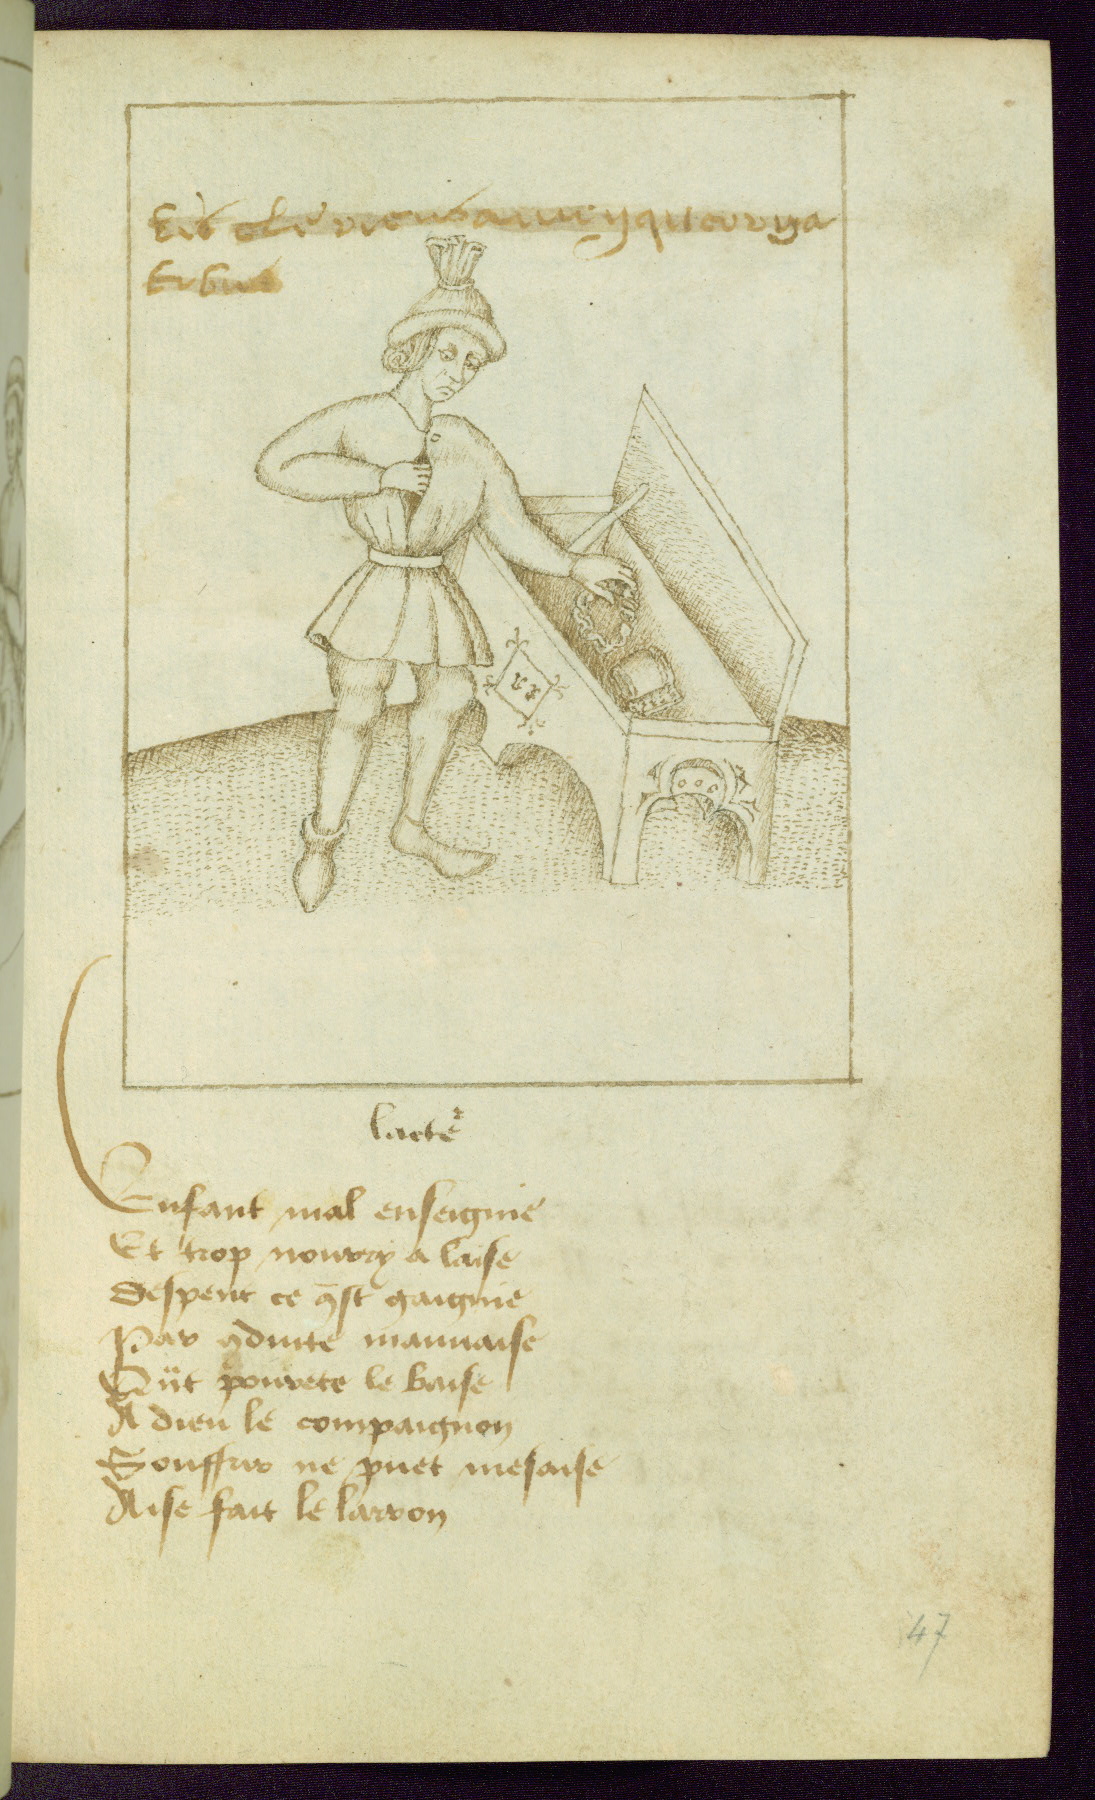 lacte
Enfant mal enseignie
Et trop nourry a laise
Despent ce q̄st gaignie
Par 9duite mauuaise
Qūt pourete le baise
A dieu le compaignon
Souffrir ne puet mesaise
Aise fait le larron
47